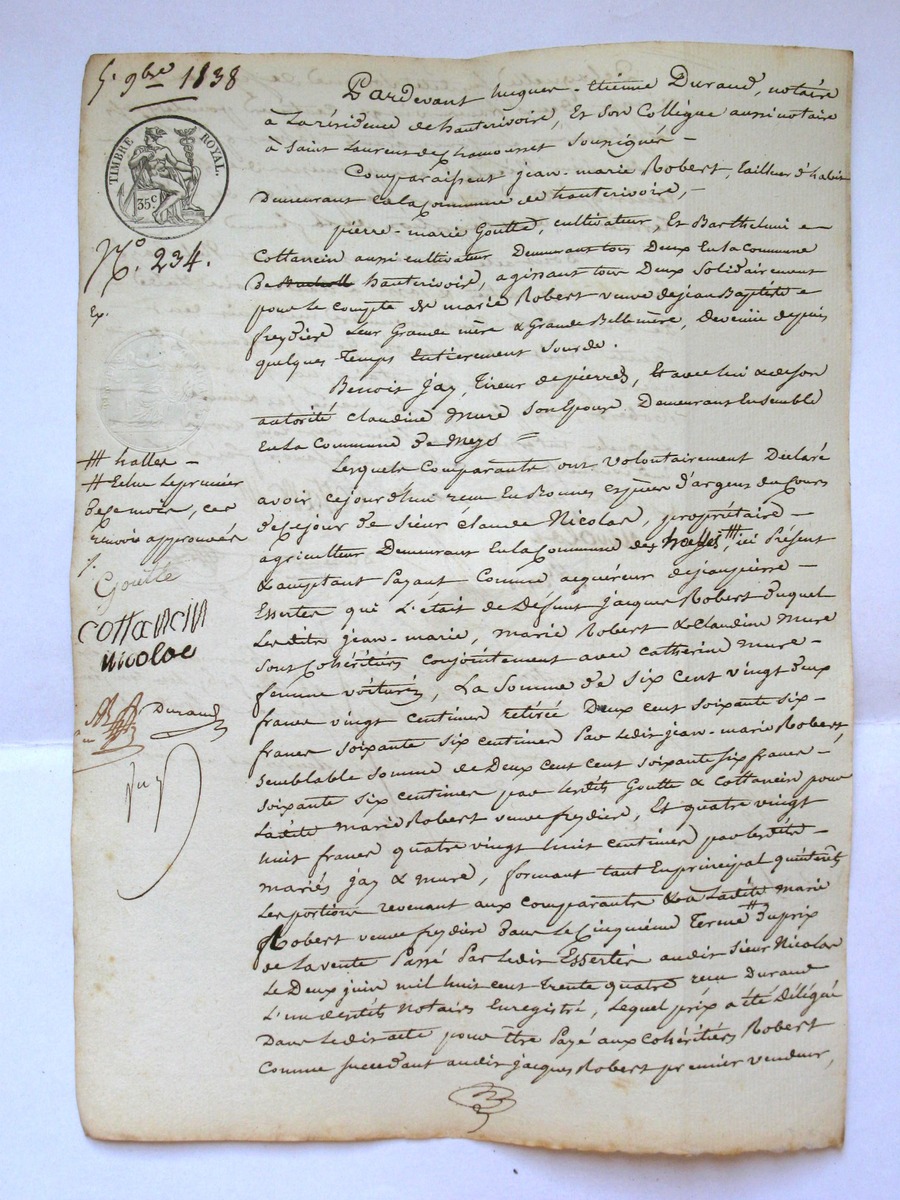 5. 9bre 1838
TIMBRE ROYAL.
35c
No. 234.
Ex.
Pardevant hugues-Etienne Durand, notaire
à La résidence de hauterivoire, Et Son Collègue aussi notaire
à Saint Laurent de Chamousset Soussignés—
Comparaissent jean-marie Robert, tailleur d'habit
Demeurant En la Commune de hauterivoire,—
pierre-marie Goutte, cultivateur, Et Barthelmi
Cottancin aussi cultivateur Demeurant tous Deux En la Commune
De hauterivoire, agissant tous Deux Solidairement
pour le compte de marie Robert veuve de jean Baptiste
freydiere Leur Grande mère & Grande Bellemère, Devenue depuis
quelques-temps Entièrement Sourde.
Benoit Jay, Tireur de pierres, Et avec lui & de Son
autorité Claudine mure Son Epouse Demeurant Ensemble
En la Commune de meys =
Lesquels Comparants ont volontairement Déclaré
avoir cejourd'hui reçu En Bonnes Espèces d'argent du Cours
de ce jour de Sieur Claude Nicolas, propriétaire—
agriculteur Demeurant En la Commune des halles, ici Présent
& acceptant Payant Comme acquéreur de jean pierre—
Essertier qui L'était de Défunt Jacques Robert Duquel
Lesdits jean-marie, marie Robert & Claudine mure
Sont Cohéritiers Conjointement avec Catherine mure-
femme voiturier, La Somme de Six Cent vingt deux
francs vingt centimes retirée Deux cent soixante six—
francs soixante six centimes Par ledit jean-marie Robert,
Semblable Somme de Deux Cent Cent soixante six francs—
soixante six centimes par lesdits Goutte & Cottancin pour
Ladite marie Robert veuve freydiere, Et quatre vingt
huit francs quatre vingt huit centimes par lesdits—
mariés Jay & mure, formant tant En principal qu'intérêts
Les portions revenant aux comparants & à Ladite marie
Robert veuve freydiere Dans le Cinquième Terme # Du prix
de La vente Passé Par Ledit Essertier audit Sieur Nicolas
Le Deux juin mil huit cent Trente quatre reçu Durand
L'un desdits Notaires Enregistré, Lequel prix a été Délégué
Dans Ledit acte pour Etre Payé aux Cohéritiers Robert
Comme Succedant audit Jacques Robert premier vendeur,
# halles—
# Echu Le premier
De ce mois, ces
renvois approuvés
Goutte
cottancin
nicolas
Durand
Jay